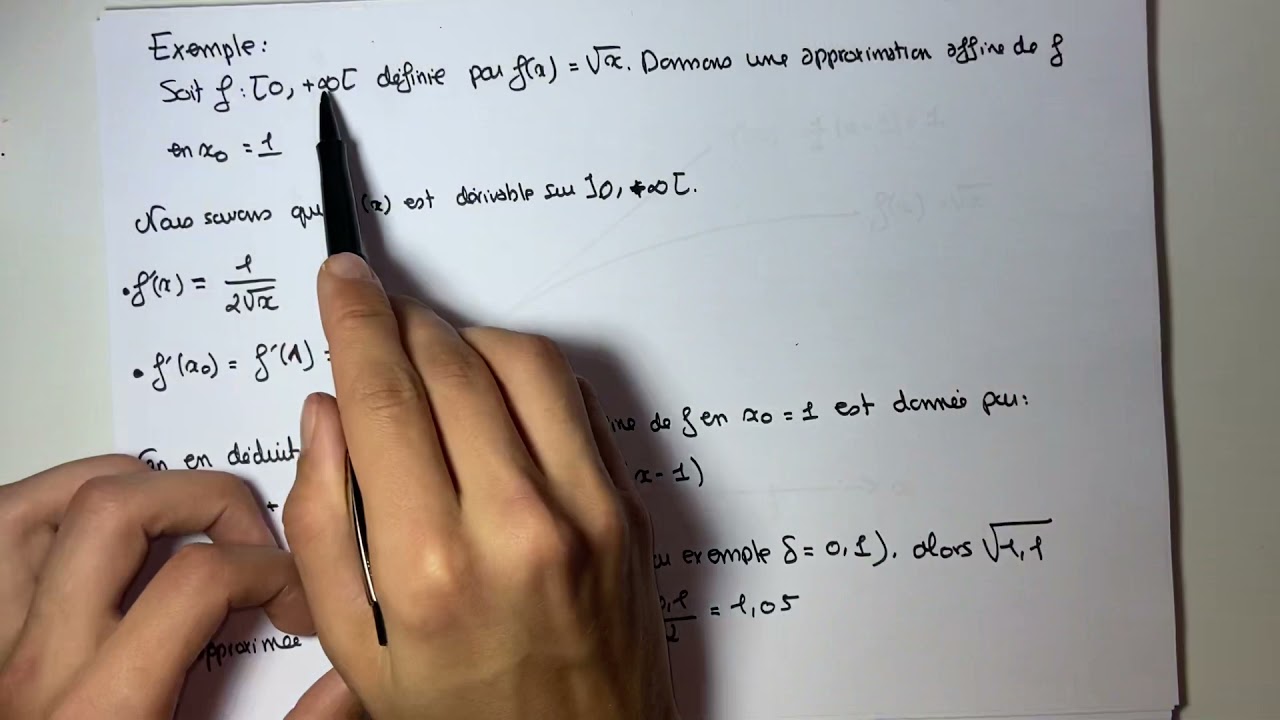 Exemple:
Soit f: [0, +∞[ définie par f(x) = √x. Donnons une approximation affine de f
en x₀ = 1
Nous savons que (x) est dérivable sur ]0, +∞[.
• f'(x) = 1/(2√x)
• f'(x₀) = f'(1) =
en déduit de f en x₀ = 1 est donnée par:
+ (x - 1)
exemple δ = 0,1), alors √1,1
approximée 0,1/2 = 1,05